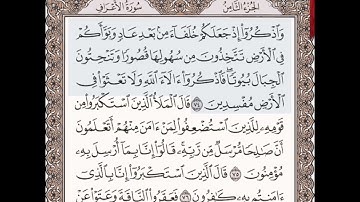 الجزء الثامن سورة الأعراف
وَٱذْكُرُوٓا۟ إِذْ جَعَلَكُمْ خُلَفَآءَ مِنۢ بَعْدِ عَادٍ وَبَوَّأَكُمْ
فِى ٱلْأَرْضِ تَتَّخِذُونَ مِن سُهُولِهَا قُصُورًا وَتَنْحِتُونَ
ٱلْجِبَالَ بُيُوتًا ۖ فَٱذْكُرُوٓا۟ ءَالَآءَ ٱللَّهِ وَلَا تَعْثَوْا۟ فِى
ٱلْأَرْضِ مُفْسِدِينَ ٧٤ قَالَ ٱلْمَلَأُ ٱلَّذِينَ ٱسْتَكْبَرُوا۟ مِن
قَوْمِهِۦ لِلَّذِينَ ٱسْتُضْعِفُوا۟ لِمَنْ ءَامَنَ مِنْهُمْ أَتَعْلَمُونَ
أَنَّ صَٰلِحًا مُّرْسَلٌ مِّن رَّبِّهِۦ ۚ قَالُوٓا۟ إِنَّا بِمَآ أُرْسِلَ بِهِۦ
مُؤْمِنُونَ ٧٥ قَالَ ٱلَّذِينَ ٱسْتَكْبَرُوٓا۟ إِنَّا بِٱلَّذِىٓ
ءَامَنتُم بِهِۦ كَٰفِرُونَ ٧٦ فَعَقَرُوا۟ ٱلنَّاقَةَ وَعَتَوْا۟ عَنْ